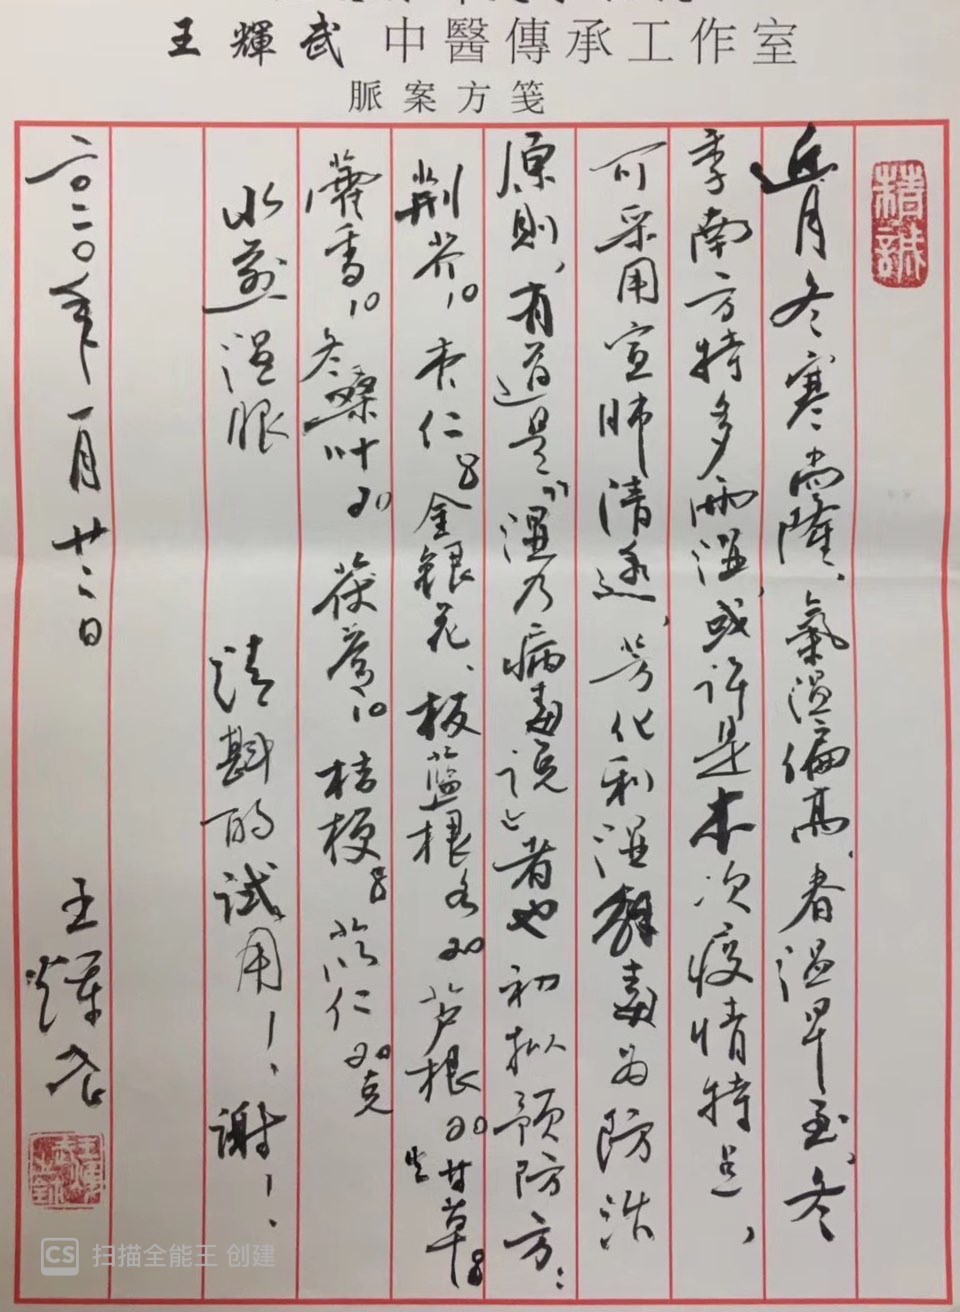 王輝武 中醫傳承工作室
脈案方箋
精誠
近月冬寒尚隆、氣温偏高、春温早至、冬
季南方特多雨湿，或许是本次疫情特点，
可采用宣肺清透，芳化利湿解毒为防治
原則，有道是“湿乃病毒说”者也初拟预防方：
荆芥10 杏仁8 金銀花、板蓝根各20 芦根20 生甘草8
藿香10 冬桑叶20 茯苓10 桔梗8 苡仁20克
水煎温服 請斟酌試用！、謝！、
二〇二〇年一月廿二日 王輝武
CS 扫描全能王 创建